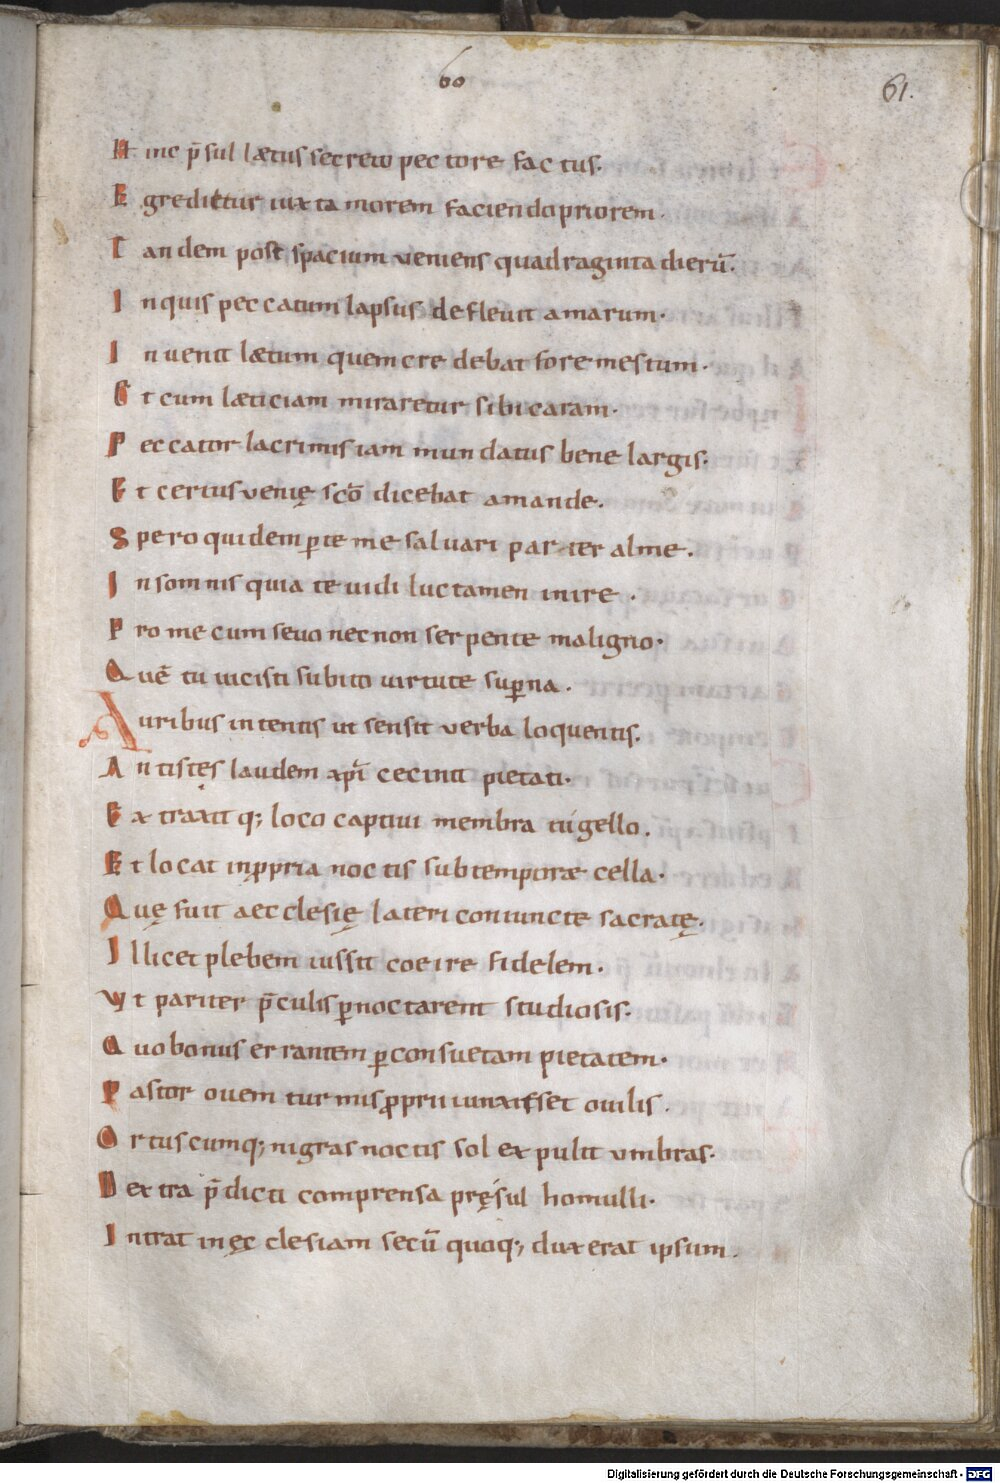 60
61.
Hinc p̄sul lætus secreto pectore factus.
Egreditur iuxta morem faciendo priorem.
Tandem post spacium veniens quadraginta dierū.
In quis peccatum lapsus deflevit amarum.
Invenit lætum quem credebat fore mestum.
Et cum læticiam miraretur sibi caram.
Peccator lacrimis iam mundatus bene largis.
Et certus venię scō dicebat amande.
Spero quidem ꝑ te me salvari pariter alme.
In somnis quia te vidi luctamen inire.
Pro me cum sevo necnon serpente maligno.
Quē tu vicisti subito virtute suꝑna.
Auribus intentis ut sensit verba loquentis.
Antistęs laudem xp̄i cecinit pietati.
Extraxitq; loco captivi membra tugello.
Et locat in ꝓpria noctis sub tempore cella.
Quę fuit aecclesię lateri coniuncte sacratę.
Illicet plebem iussit coeire fidelem.
Vt pariter p̄culis ꝑnoctarent studiosis.
Quo bonus errantem ꝑ consuetam pietatem.
Pastor ovem turmis ꝓprii iunxisset ovilis.
Ortus cumq; nigras noctis sol expulit vmbras.
Dextra p̄dicti comprensa pręsul homulli.
Intrat in ęcclesiam secū quoq; duxerat ipsum.
Digitalisierung gefördert durch die Deutsche Forschungsgemeinschaft - DFG